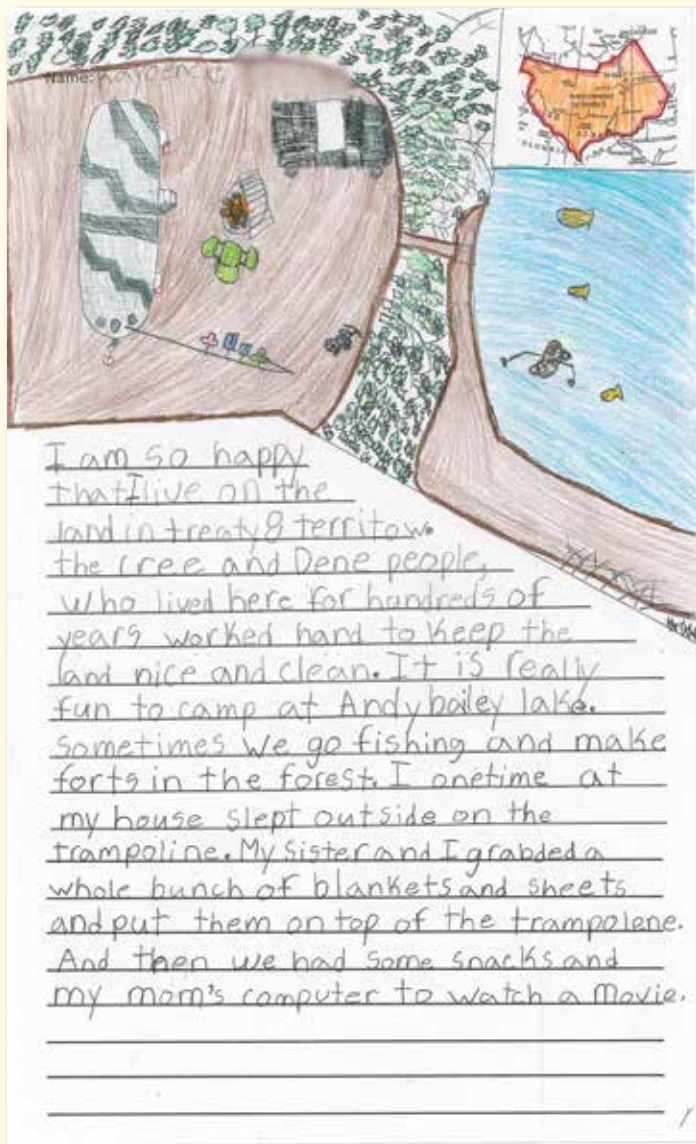 Name:
I am so happy
that I live on the
land in treaty 8 territow.
the Cree and Dene people,
who lived here for hundreds of
years worked hand to keep the
land nice and clean. It is really
fun to camp at Andy bailey lake.
Sometimes we go fishing and make
forts in the forest. I onetime at
my house slept outside on the
trampoline. My sister and I grabded a
whole bunch of blankets and sheets
and put them on top of the trampolene.
And then we had some snacks and
my mom's computer to watch a movie.